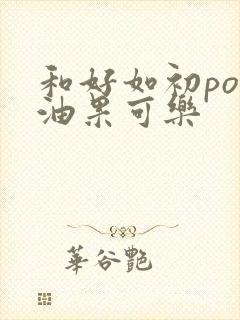 和好如初po
油果可樂
華谷艷